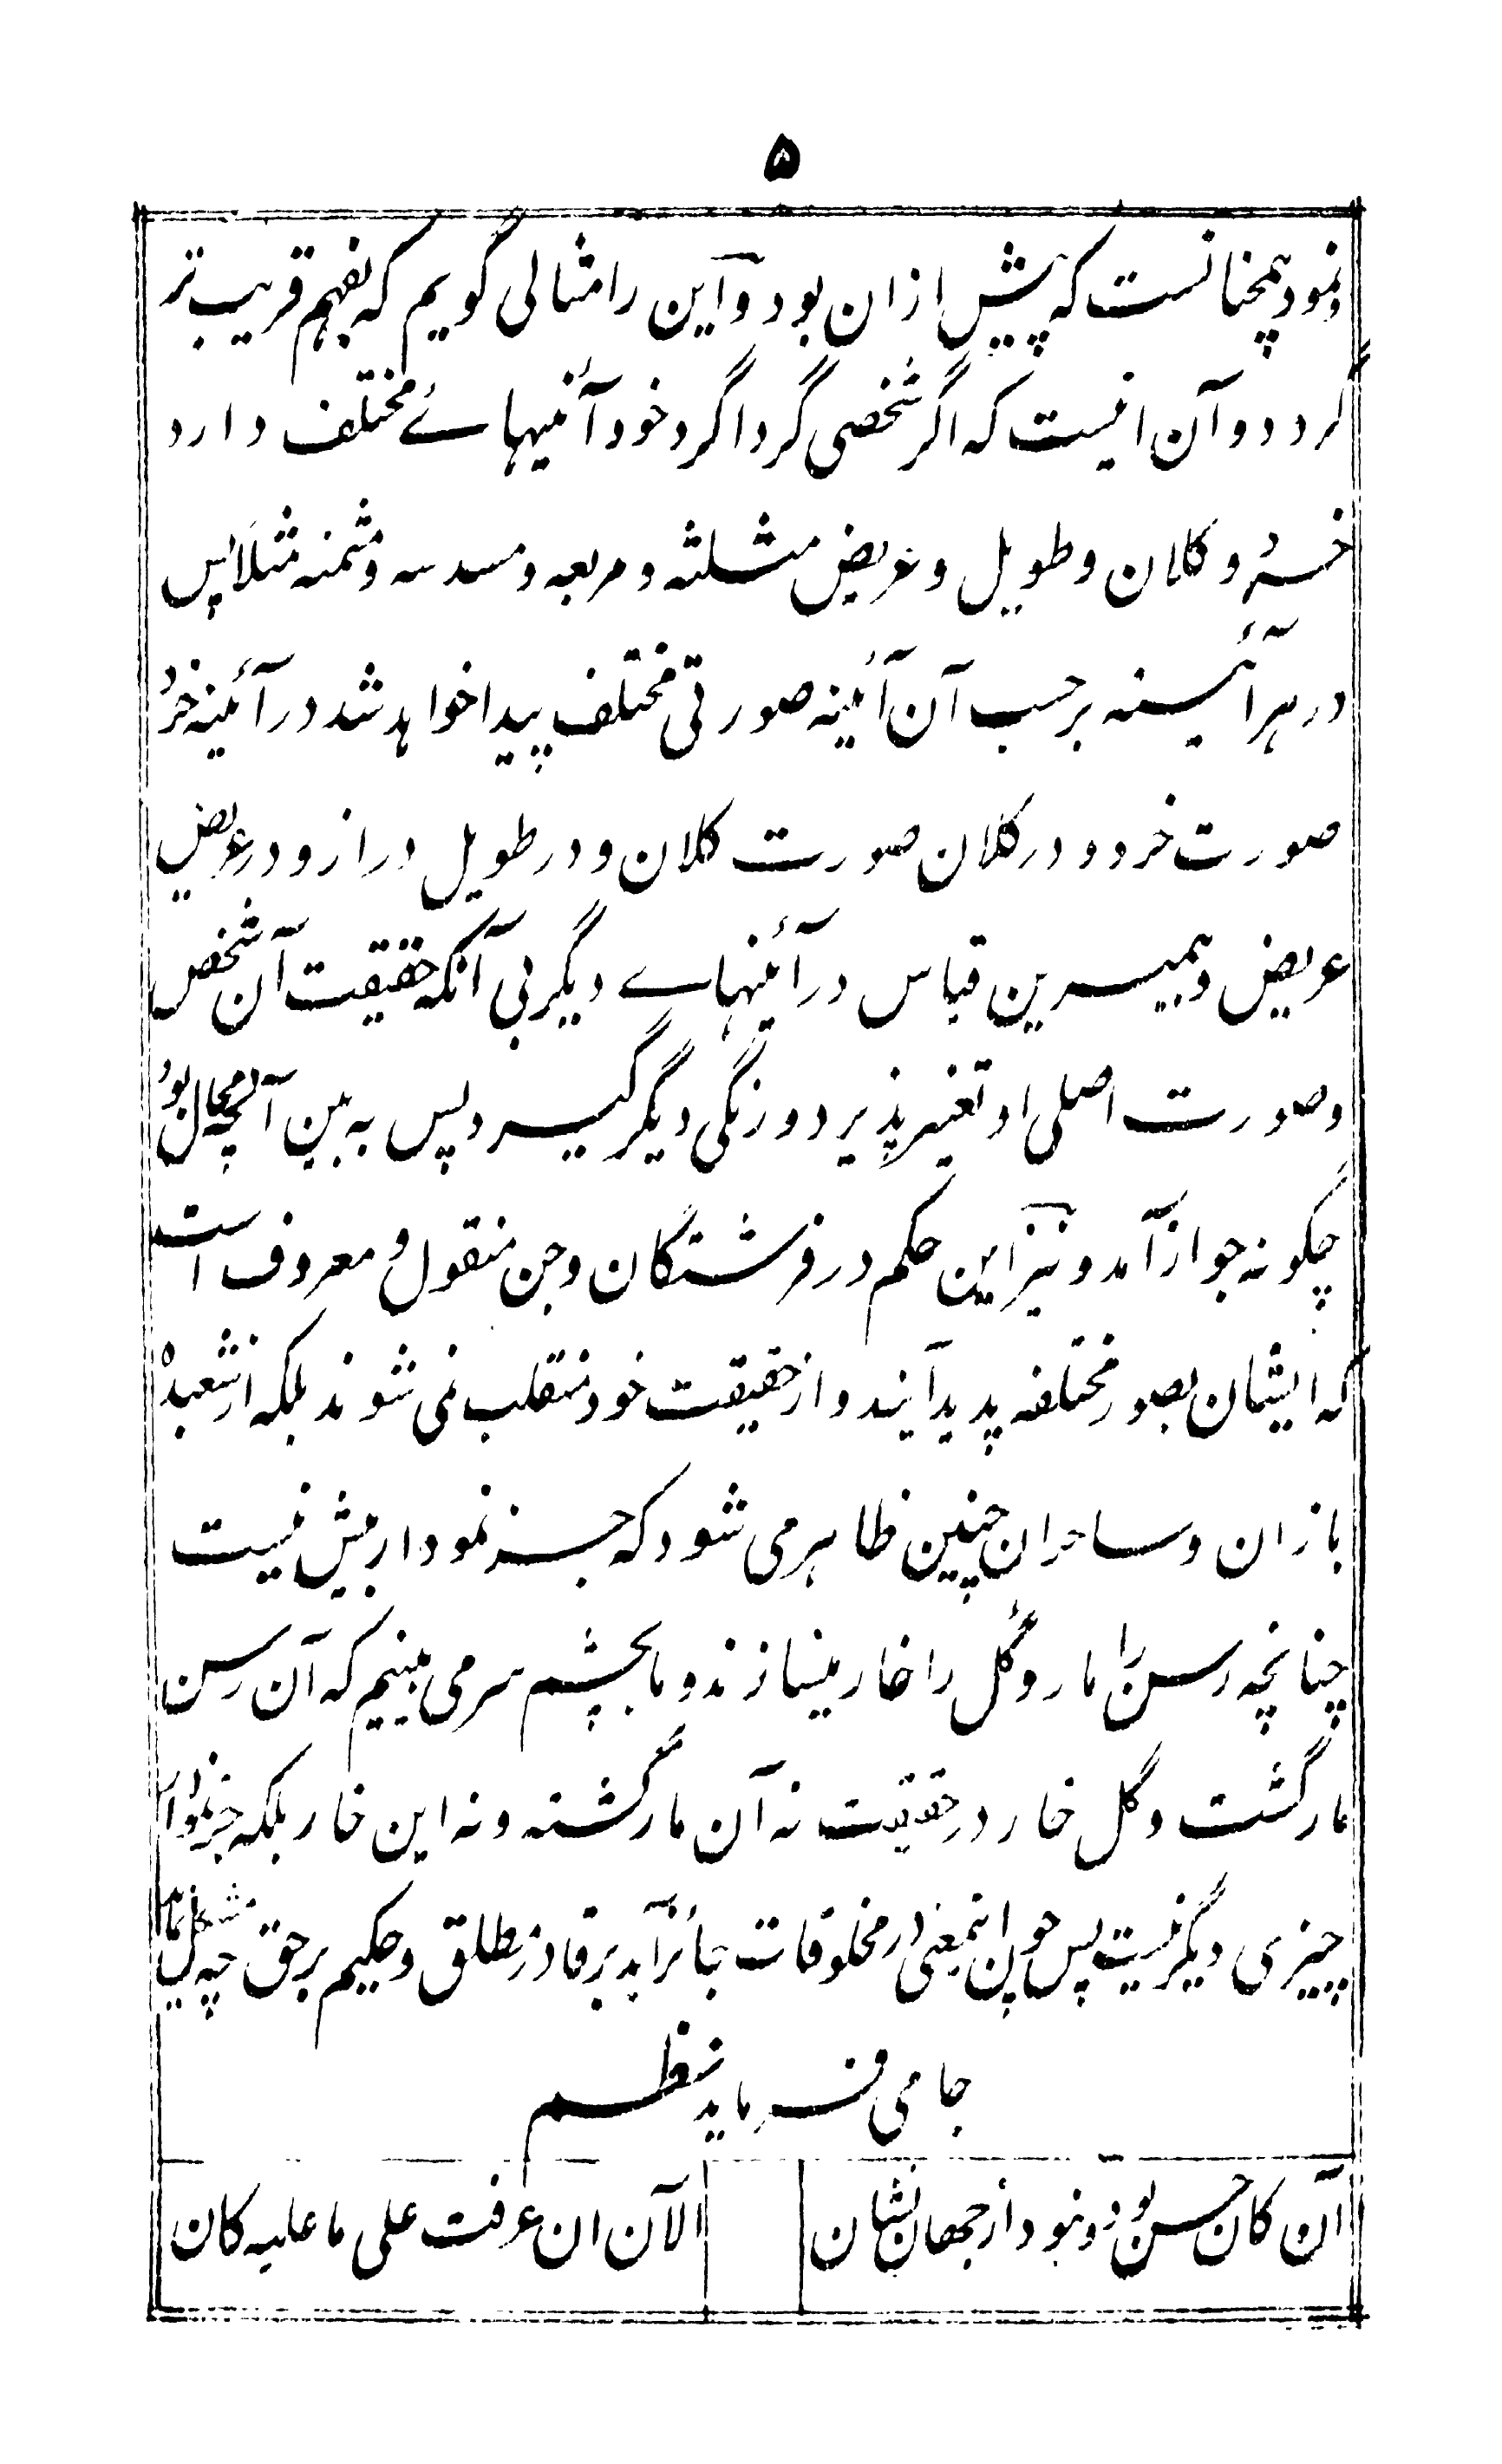 ۵
ونمود همچنانست که پیش ازان بود و این را مثالی گویم که بفهم قریب تر
گردد و آن اینست که اگر شخصی گرداگرد خود آئینهاے مختلف دارد
خرد و کلان و طویل و عریض مثلثه و مربعه و مسدسه و مثمنه مثلا پس
در هر آئینه برحسب آن آئینه صورتی مختلف پیدا خواهد شد در آئینه خرد
صورت خرد و در کلان صورت کلان و در طویل دراز و در عریض
عریض و همبرین قیاس در آئینهاے دیگر بی آنکه حقیقت آن شخص
و صورت اصلی او تغیر پذیرد و رنگی دیگر گیرد پس به بین آنچه محال بود
چگونه جواز آمد و نیز این حکم در فرشتگان و جن منقول و معروف است
که ایشان بصور مختلفه پدید آیند و از حقیقت خود منقلب نمی شوند بلکه از شعبده
بازان و ساحران چنین ظاهر می شود که جز نمودار بیش نیست
چنانچه رسن را مار و گل را خار میسازند و ما بچشم سر می بینیم که آن رسن
مار گشت و گل خار در حقیقت نه آن مار گشته و نه این خار بلکه جز نمودار
چیزی دیگر نیست پس چون اینمعنی در مخلوقات جائز آید بر قادر مطلق و حکیم برحق چه مشکل
جامی فرماید نظم
آن کان حسن بود و نبود از جهان نشان
الآن ان عرفت علی ما علیه کان